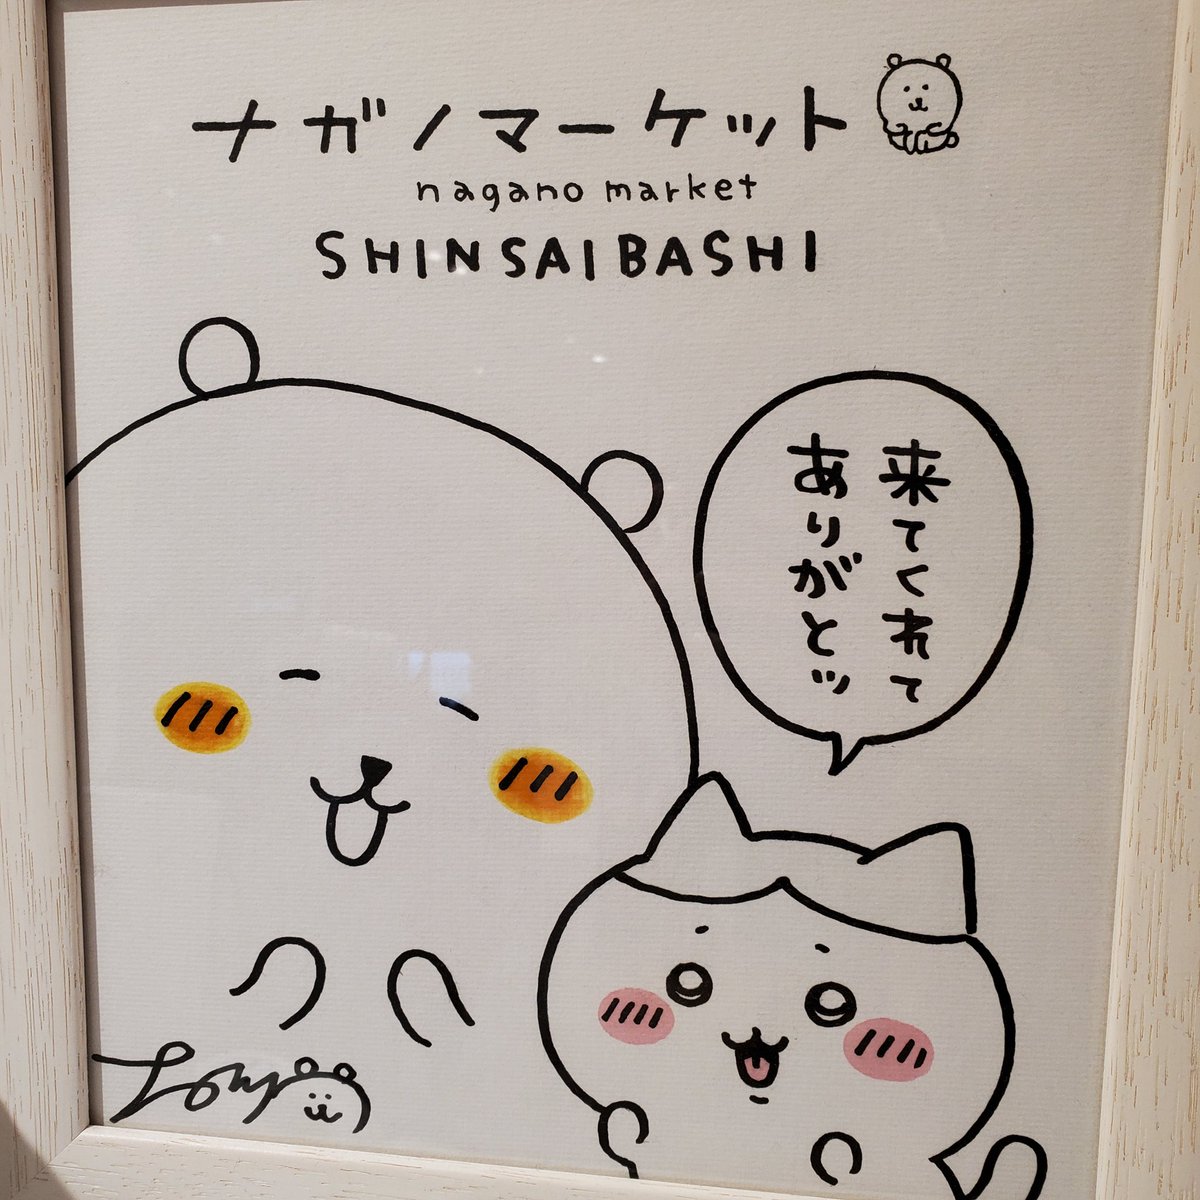 ナガノマーケット
nagano market
SHINSAIBASHI
来てくれて
ありがとッ